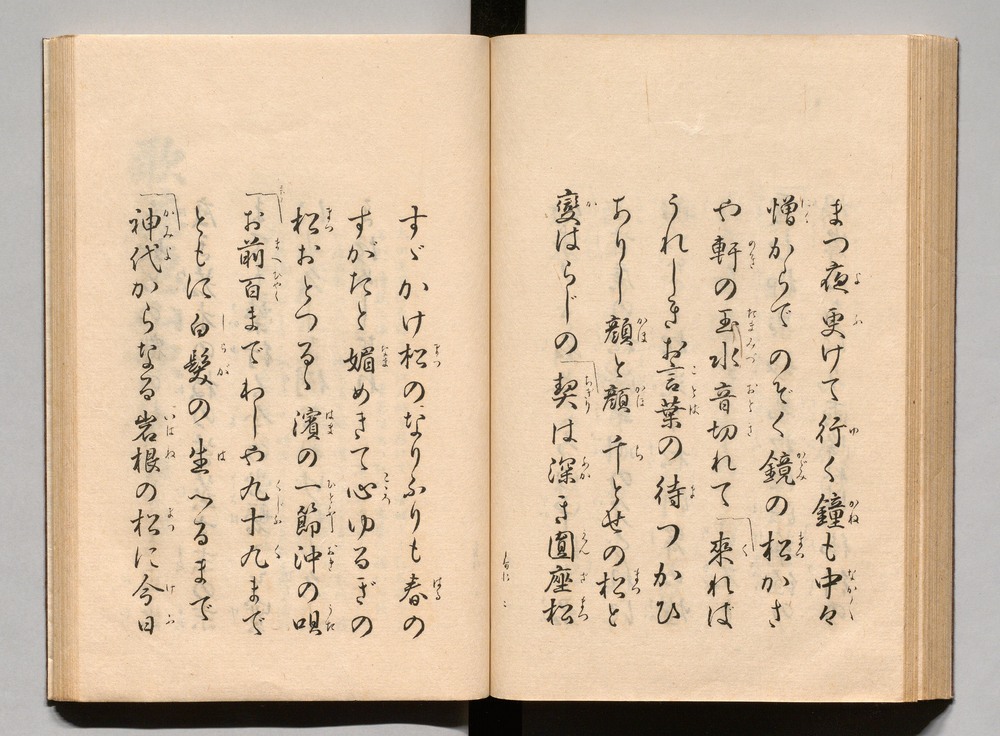 まつ夜更けて行く鐘も中々
憎からでのぞく鏡の松かさ
や軒の玉水音切れて来れば
うれしきお言葉の待つかひ
ありし顔と顔千とせの松と
變はらじの契は深き圓座松
すゞかけ松のなりふりも春の
すがたと媚めきて心ゆるぎの
松おとつるゝ濱の一節沖の唄
お前百までわしや九十九まで
ともに白髮の生へるまで
神代からなる岩根の松に今日